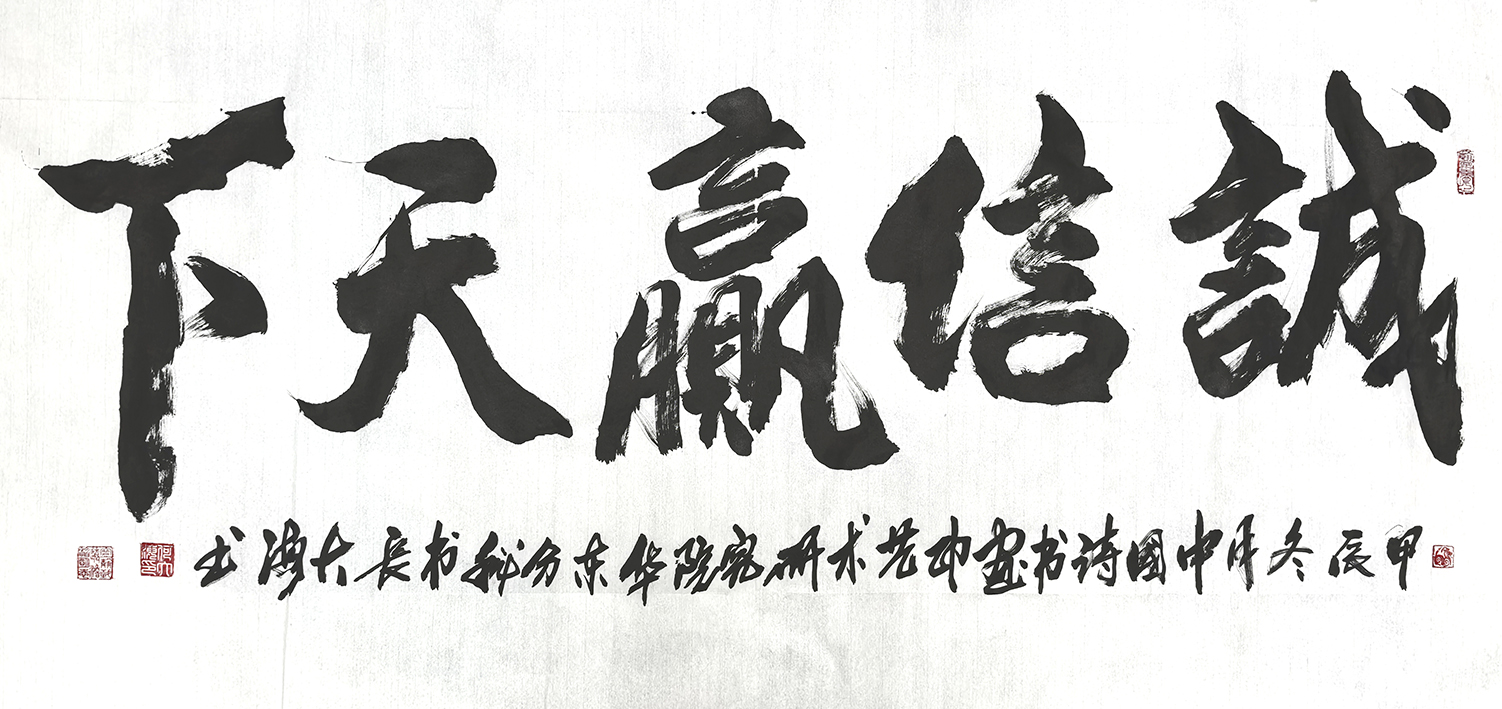 誠信赢天下
甲辰冬月中國诗书画印艺术研究院华东分秘书长大书